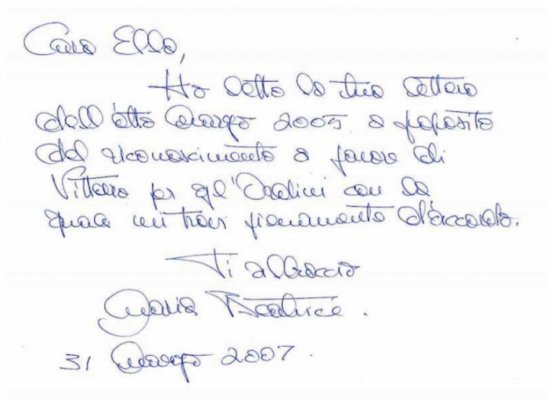 Cara Ella,
Ho letto la tua lettera
dell'otto marzo 2005 a proposito
del riconoscimento a favore di
Vittorio per gl'Ordini con la
quale mi trovi pienamente d'accordo.
Ti abbraccio
Maria Beatrice.
31 marzo 2007.